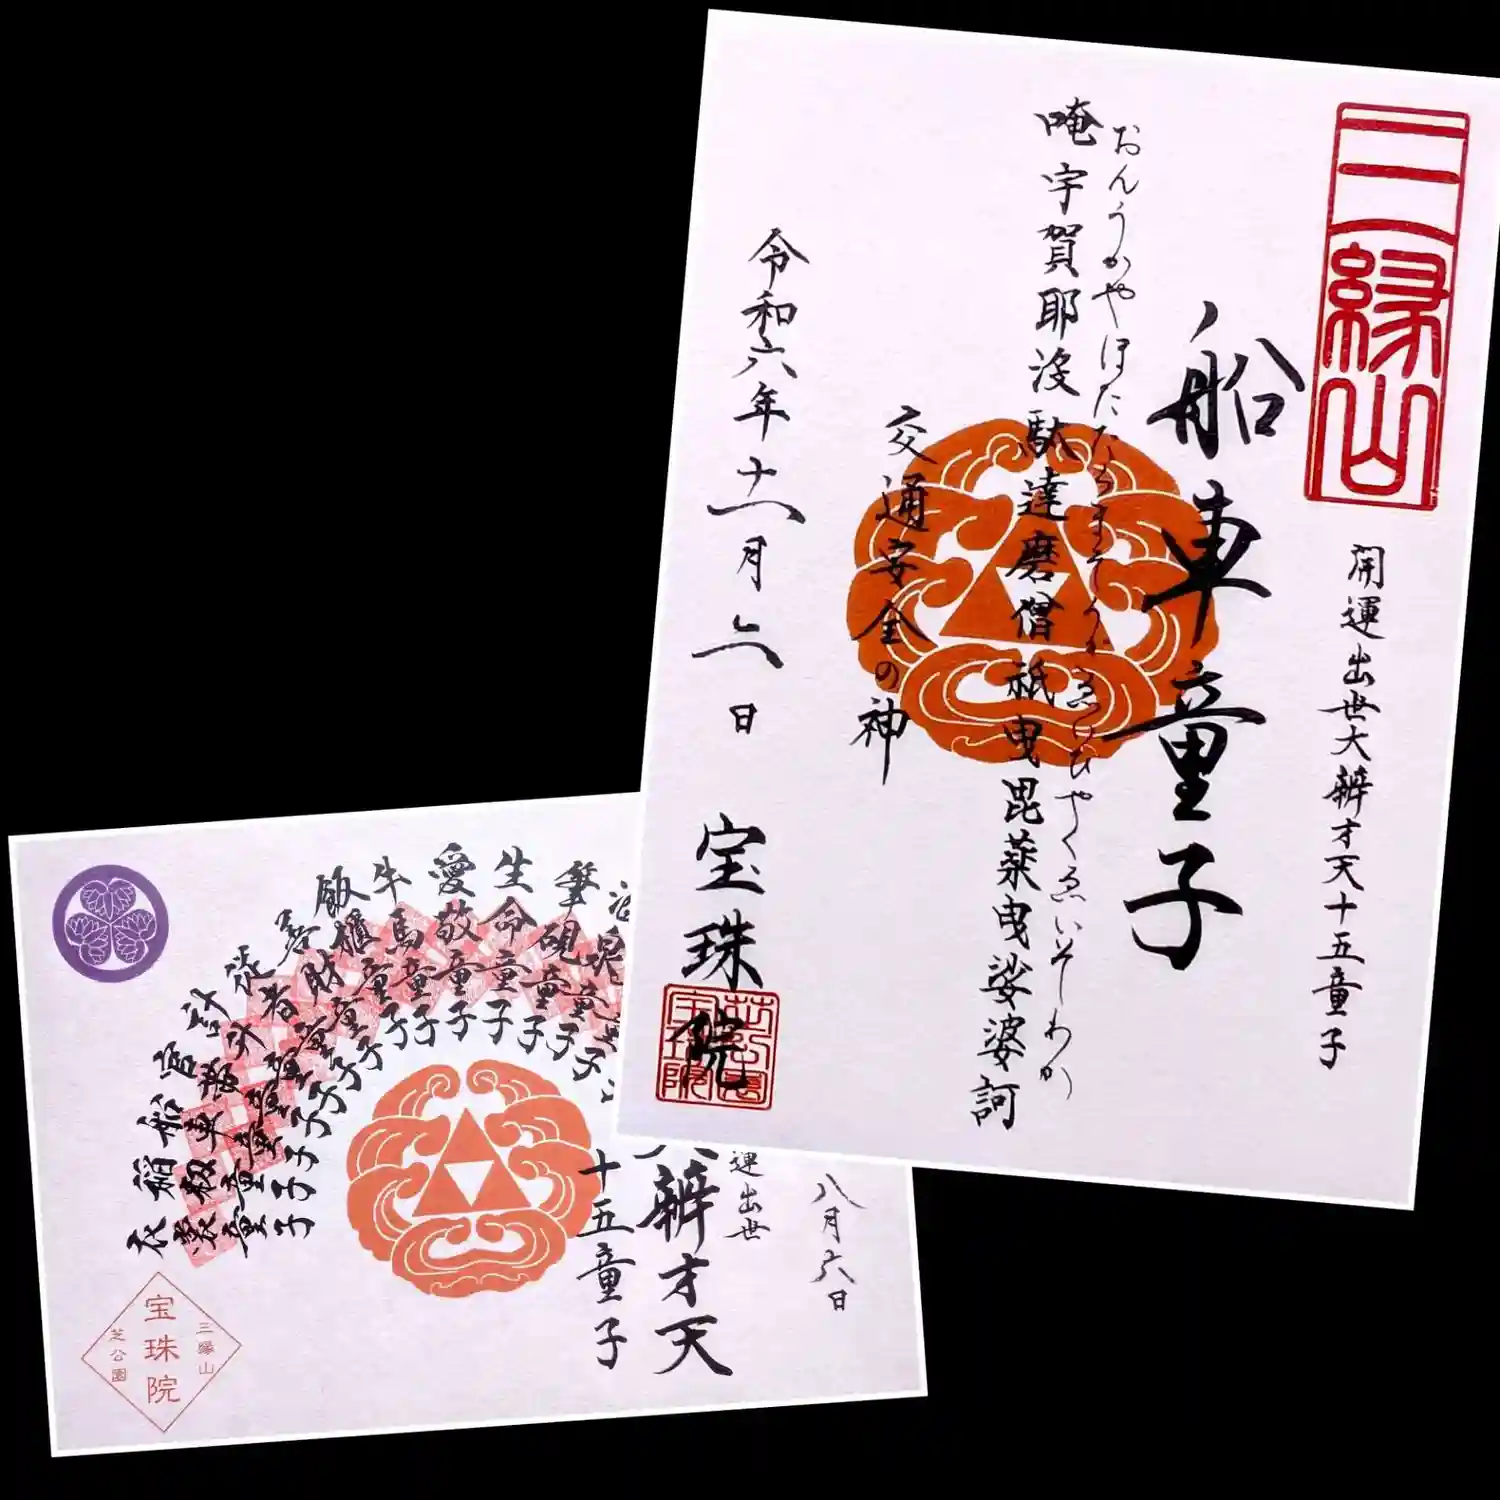 三縁山
開運出世大辨才天十五童子
船車童子
おんうかやぼだだるまそうぎゑいびやくゑいそわか
唵宇賀耶没駄達磨僧祇曳毘薬曳娑婆訶
交通安全の神
令和六年十一月六日
宝珠院
芝公園
宝珠院
八月六日
運出世
辨才天
十五童子
筆硯童子
生命童子
愛敬童子
牛馬童子
飯櫃童子
官帯童子
船車童子
稲籾童子
衣裳童子
三縁山
宝珠院
芝公園